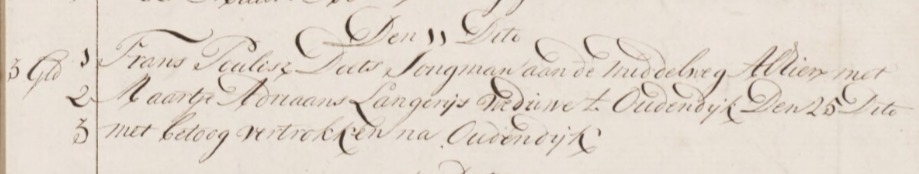 Den 11 Dito
3 Gld 1 Frans Poulisz Doets Jongman aan de middelweg Alhier met
2 Maartje Adriaans Langerijs Weduwe t. Oudendijk Den 25 Dito
3 met betoog vertrokken na Oudendijk